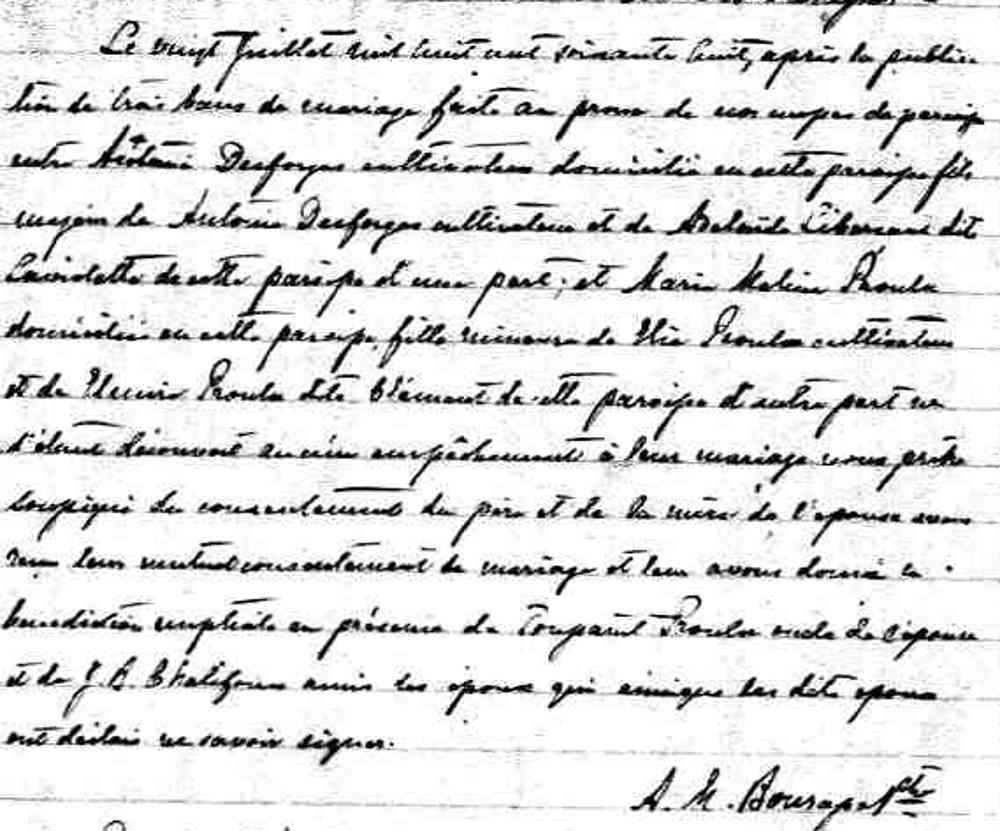 Le vingt Juillet mil huit cent soixante huit, après la publica
tion de trois bans de mariage faite au prone de nos messes de paroisse
entre Antoine Desforges cultivateur domicilié en cette paroisse fils
majeur de Antoine Desforges cultivateur et de Adelaide Libersan dit
Laviolette de cette paroisse d'une part; et Marie Melina Proulx
domiciliée en cette paroisse, fille mineure de Elie Proulx cultivateur
et de Proulx dite Clément de cette paroisse d'autre part ne
s'étant découvert aucun empêchement à leur mariage nous prêtre
soussigné du consentement du père et de la mère de l'épouse avons
reçu leur mutuel consentement de mariage et leur avons donné la
bénédiction nuptiale en présence de Toupaint Proulx oncle de l'épouse
et de J. B. Chalifoux amis des époux qui ainsique les dits époux
ont déclaré ne savoir signer.
A. M. Bourassa Ptre